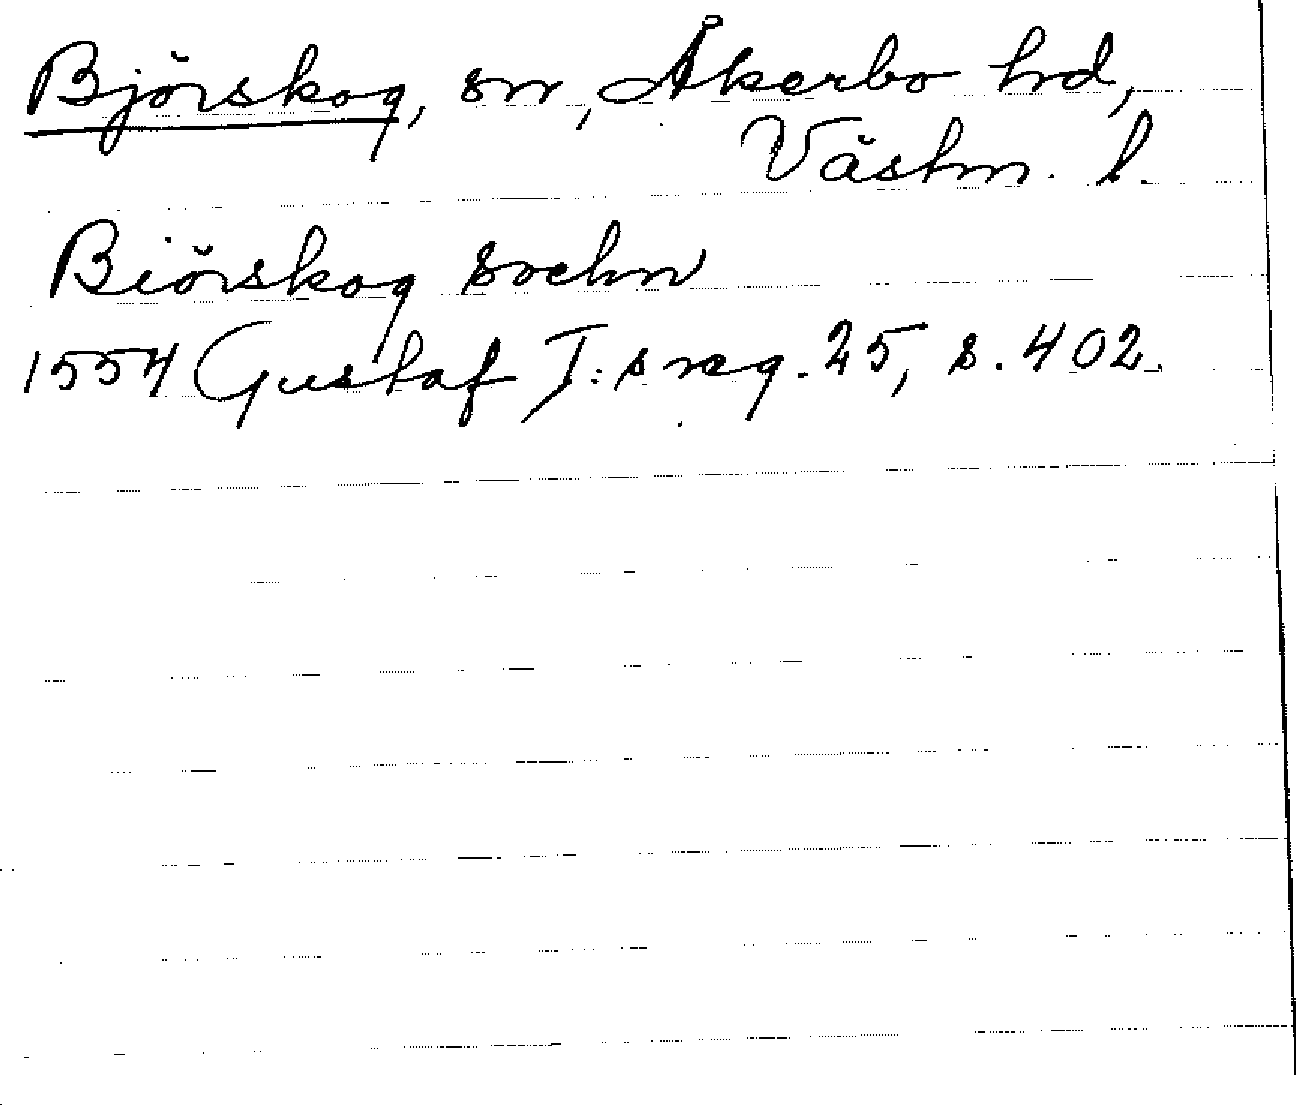 Björskog, sn, Åkerbo hd,
Västm. l.
Biörskog sochn
1554 Gustaf I:s reg. 25, s. 402.